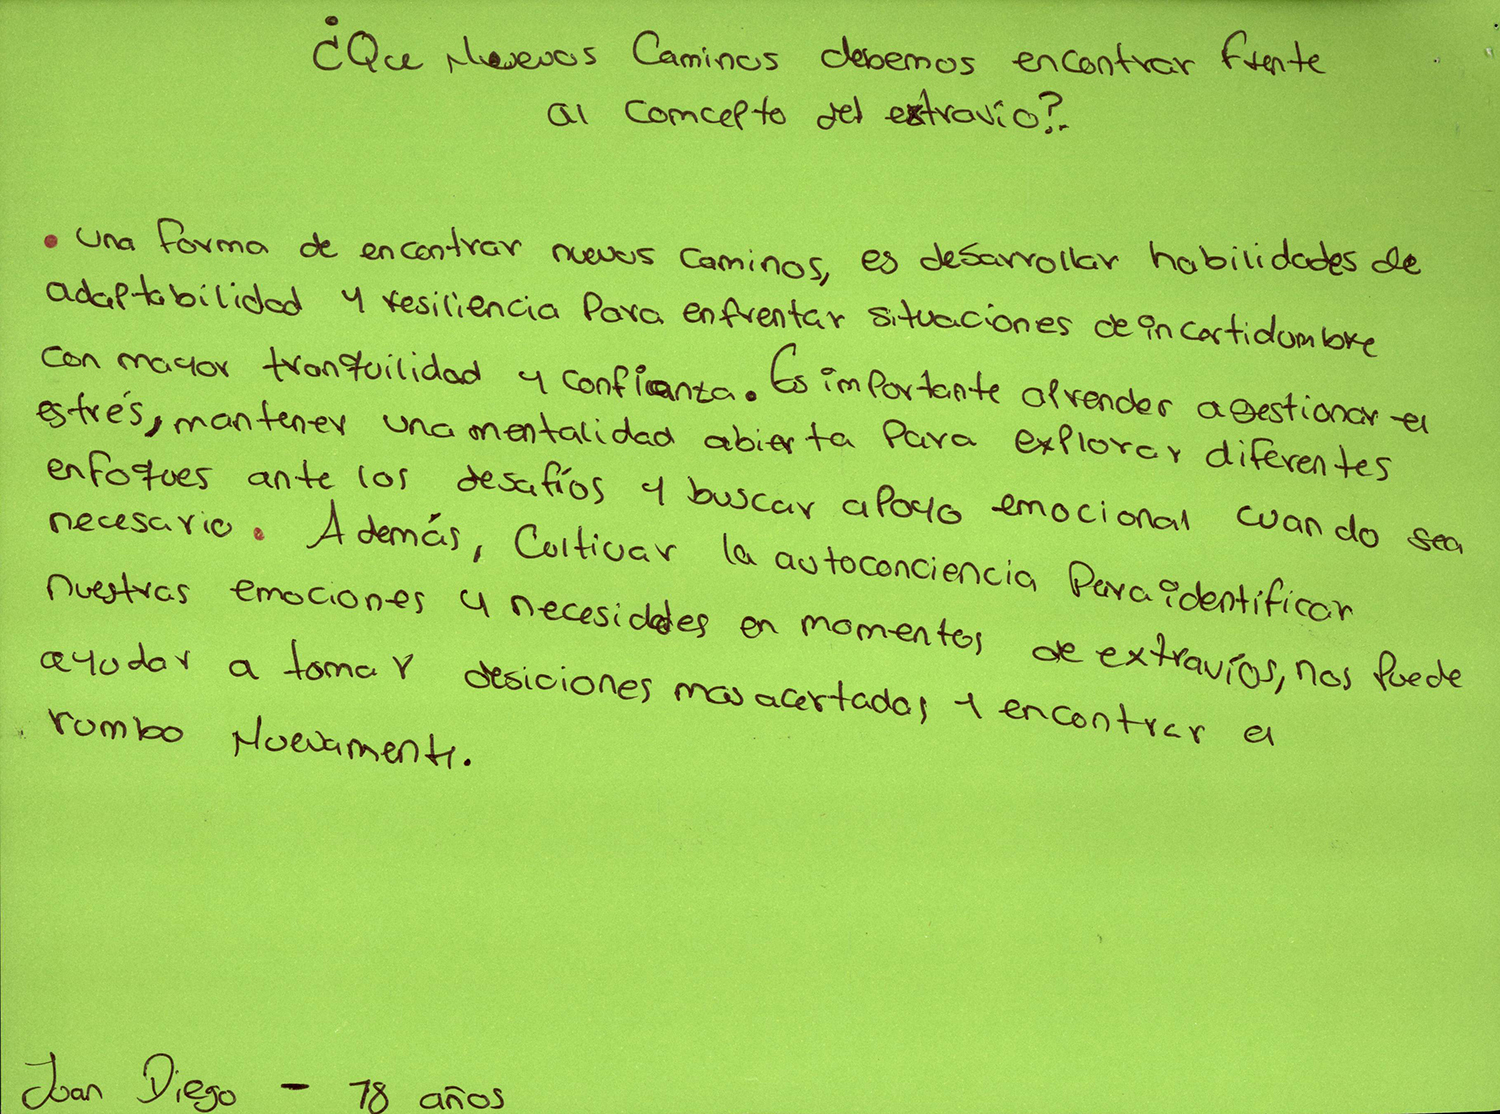 ¿Que Nuevos Caminos debemos encontrar frente
al comcepto del extravío?.
• una forma de encontrar nuevos caminos, es desarrollar habilidades de
adaptabilidad y resiliencia para enfrentar situaciones de incertidumbre
con mayor tranquilidad y confianza. Es importante aprender a gestionar el
estrés, mantener una mentalidad abierta para explorar diferentes
enfoques ante los desafíos y buscar apoyo emocional cuando sea
necesario. Además, Cultivar la autoconciencia para identificar
nuestras emociones y necesidades en momentos de extravíos, nos puede
ayudar a tomar desiciones mas acertadas y encontrar el
rumbo Nuevamente.
Juan Diego - 18 años